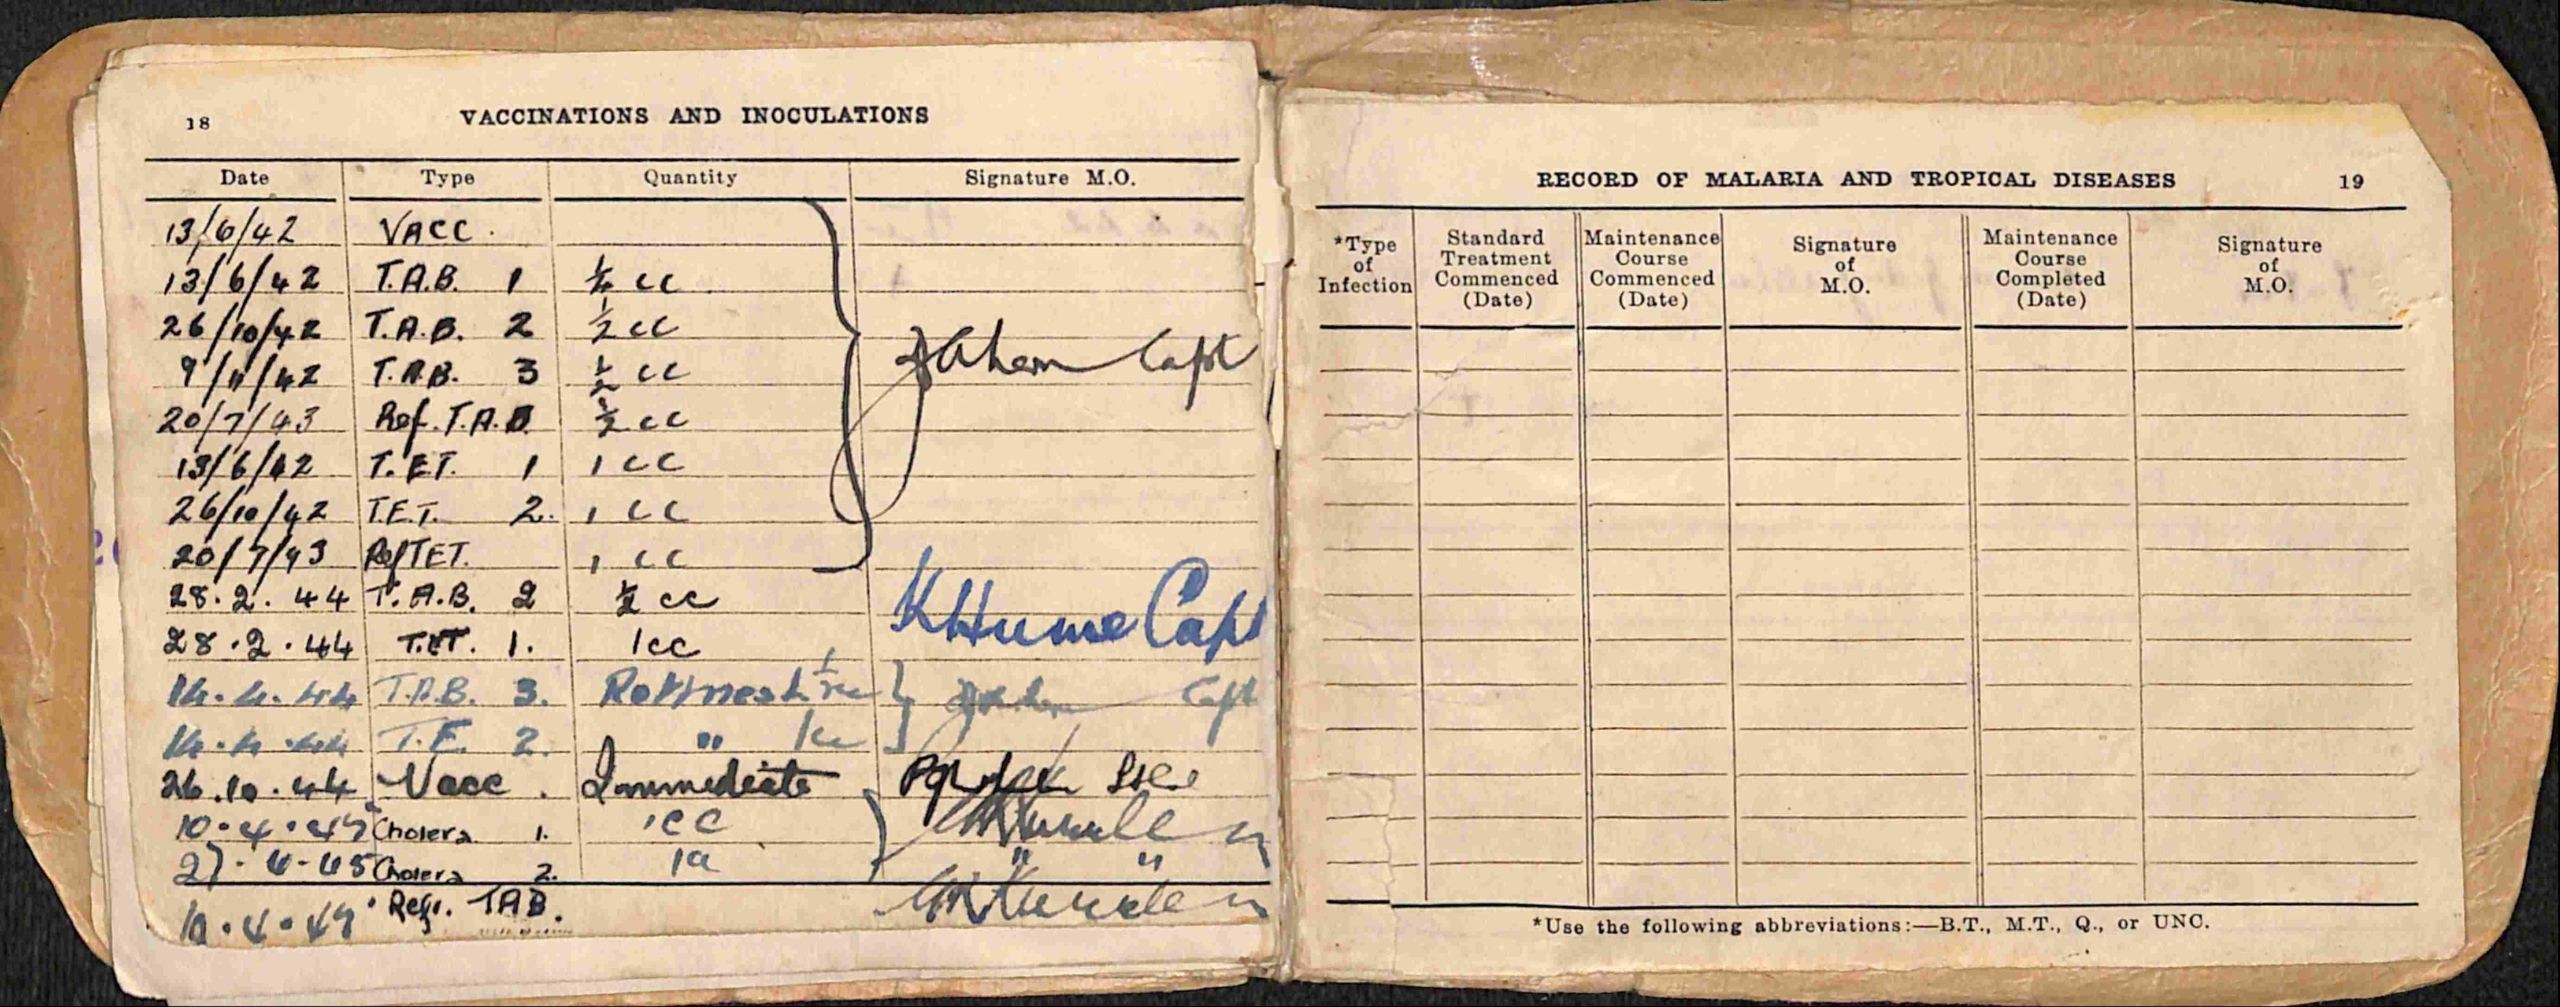 18 VACCINATIONS AND INOCULATIONS
Date Type Quantity Signature M.O.
13/6/42 VACC.
13/6/42 T.A.B. 1 ¼ cc.
26/10/42 T.A.B. 2 ½ cc
9/11/42 T.A.B. 3 ½ cc
Capt
20/7/43 Ref. T.A.B. ½ cc
13/6/42 T.ET. 1 1 cc
26/10/42 T.E.T. 2. 1 cc
20/7/43 Ref TET. 1 cc
28.2.44 T.A.B. 2 ½ cc
K Hume Capt
28.2.44 T.ET. 1. 1cc
14.4.44 T.A.B. 3. Rottnest ½cc Capt
14.4.44 T.E. 2. " 1cc
26.10.44 Vacc. Immediate
10.4.45 Cholera 1. 1cc
27.4.45 Cholera 2. 1cc " "
10.4.45 Refr. TAB.
RECORD OF MALARIA AND TROPICAL DISEASES 19
*Type of Infection
Standard Treatment Commenced (Date)
Maintenance Course Commenced (Date)
Signature of M.O.
Maintenance Course Completed (Date)
Signature of M.O.
*Use the following abbreviations:—B.T., M.T., Q., or UNC.